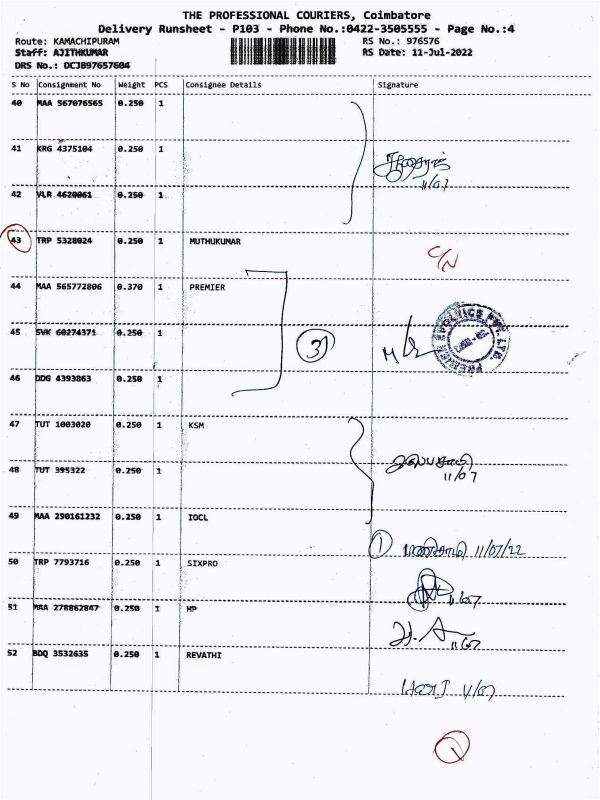 THE PROFESSIONAL COURIERS, Coimbatore
Delivery Runsheet - P103 - Phone No.:0422-3505555 - Page No.:4
Route: KAMACHIPURAM RS No.: 976576
Staff: AJITHKUMAR RS Date: 11-Jul-2022
DRS No.: DCJB97657604
S No Consignment No Weight PCS Consignee Details Signature
40 MAA 567076565 0.250 1
41 KRG 4375104 0.250 1
11/07
42 VLR 4620061 0.250 1
43 TRP 5328024 0.250 1 MUTHUKUMAR C/N
44 MAA 565772806 0.370 1 PREMIER
45 SVK 60274371 0.250 1 3
46 DDG 4393863 0.250 1
47 TUT 1003020 0.250 1 KSM
48 TUT 395322 0.250 1 11/07
49 MAA 290161232 0.250 1 IOCL
1 11/07/22
50 TRP 7793716 0.250 1 SIXPRO
11/07
51 MAA 278862847 0.250 1 HP
11/07
52 BDQ 3532635 0.250 1 REVATHI